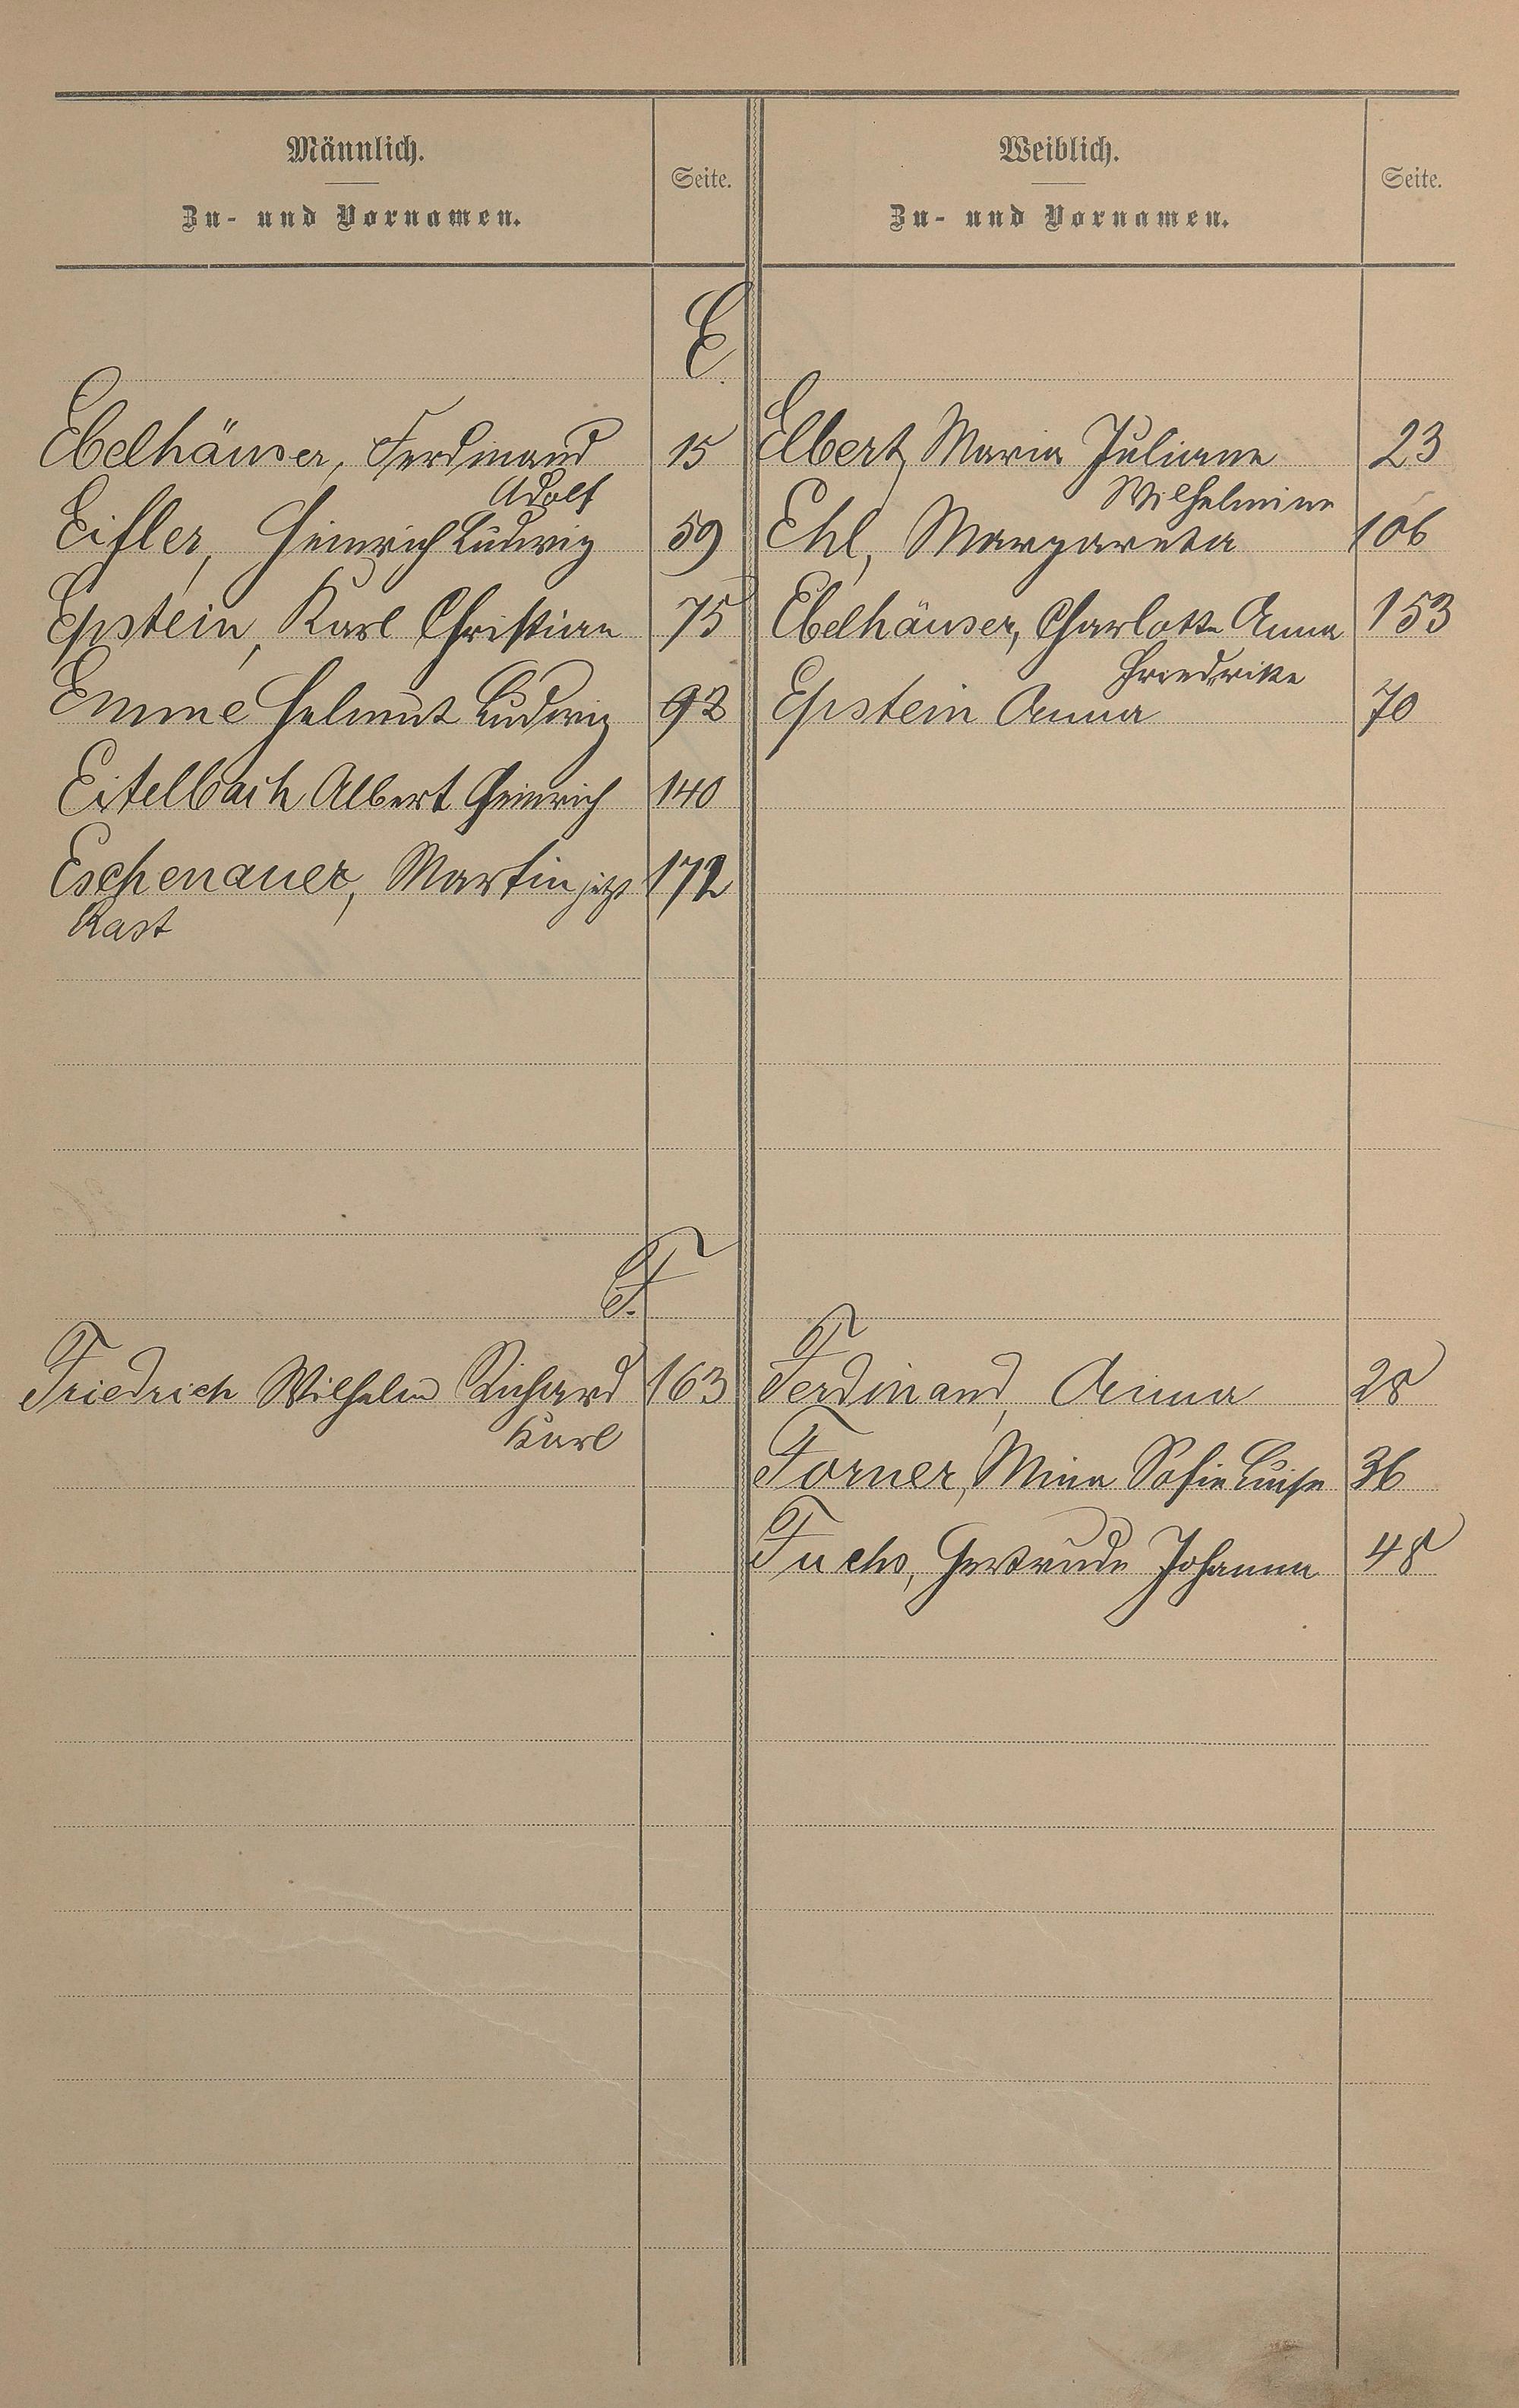 Männlich.
Zu- und Vornamen.
Seite.
Weiblich.
Zu- und Vornamen.
Seite.
E.
Ebelhäuser, Ferdinand 15 Elbert, Maria Juliane 23
Adolf Wilhelmine
Eifler, Heinrich Ludwig 59 Ehl, Margareta 106
Epstein, Karl Christian 75 Ebelhäuser, Charlotte Anna 153
Friedrike
Emme Helmut Ludwig 92 Epstein Anna 70
Eitelbach Albert Heinrich 140
Eschenauer, Martin jetzt 172
Rast
F.
Friedrich Wilhelm Richard 163 Ferdinand, Anna 28
Karl
Forner, Mina Sofie Luise 36
Fuchs, Gertrude Johanna 48